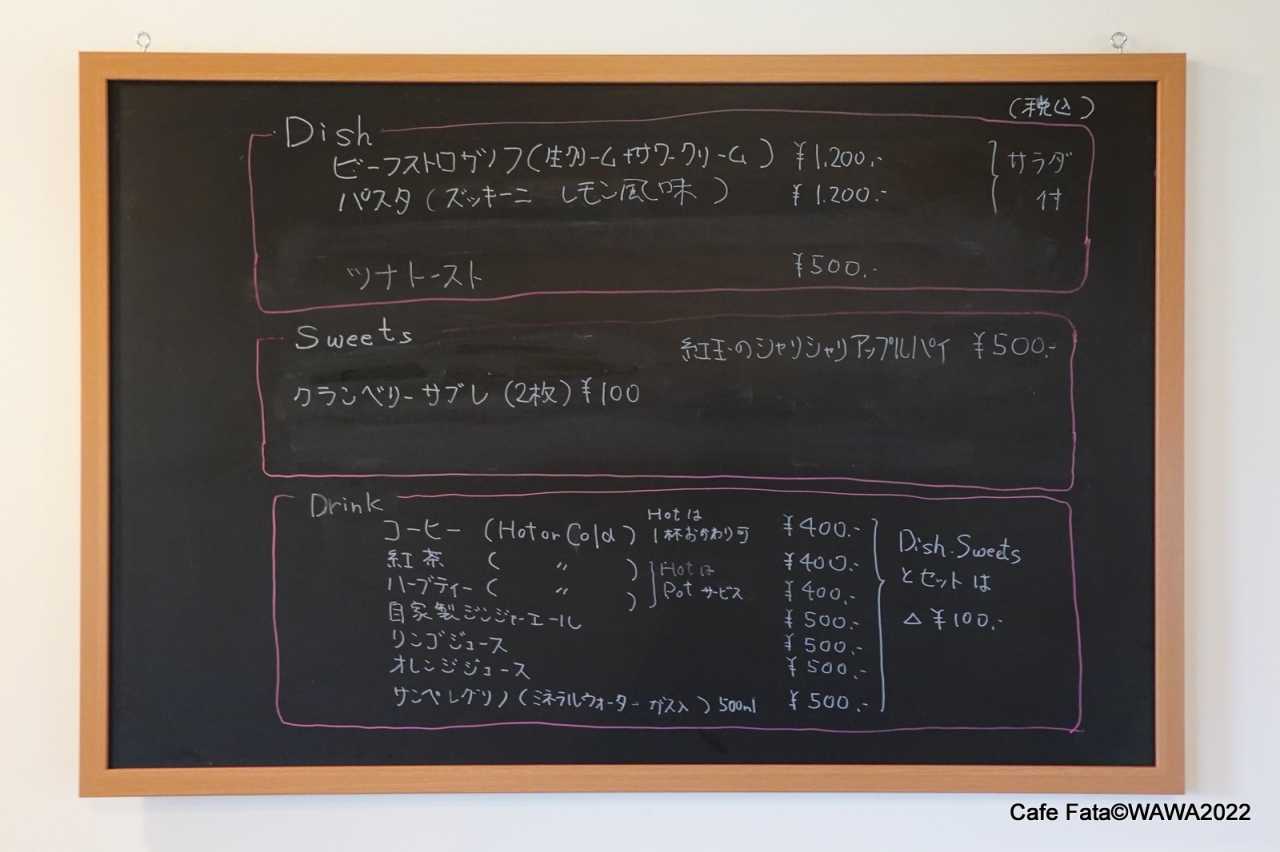 (税込)
Dish
ビーフストロガノフ(生クリーム+サワークリーム) ¥1.200.-
パスタ(ズッキーニ レモン風味) ¥1.200.-
サラダ
付
ツナトースト ¥500.-
Sweets
紅玉のシャリシャリアップルパイ ¥500.-
クランベリーサブレ(2枚)¥100
Drink
コーヒー(Hot or Cold) Hotは 1杯おかわり可 ¥400.-
紅茶 ( 〃 ) ¥400.-
ハーブティー( 〃 ) ¥400.-
Hotは
Potサービス
自家製ジンジャーエール ¥500.-
リンゴジュース ¥500.-
オレンジジュース ¥500.-
サンペレグリノ(ミネラルウォーター ガス入)500ml ¥500.-
Dish.Sweets
とセットは
△¥100.-
Cafe Fata©WAWA2022